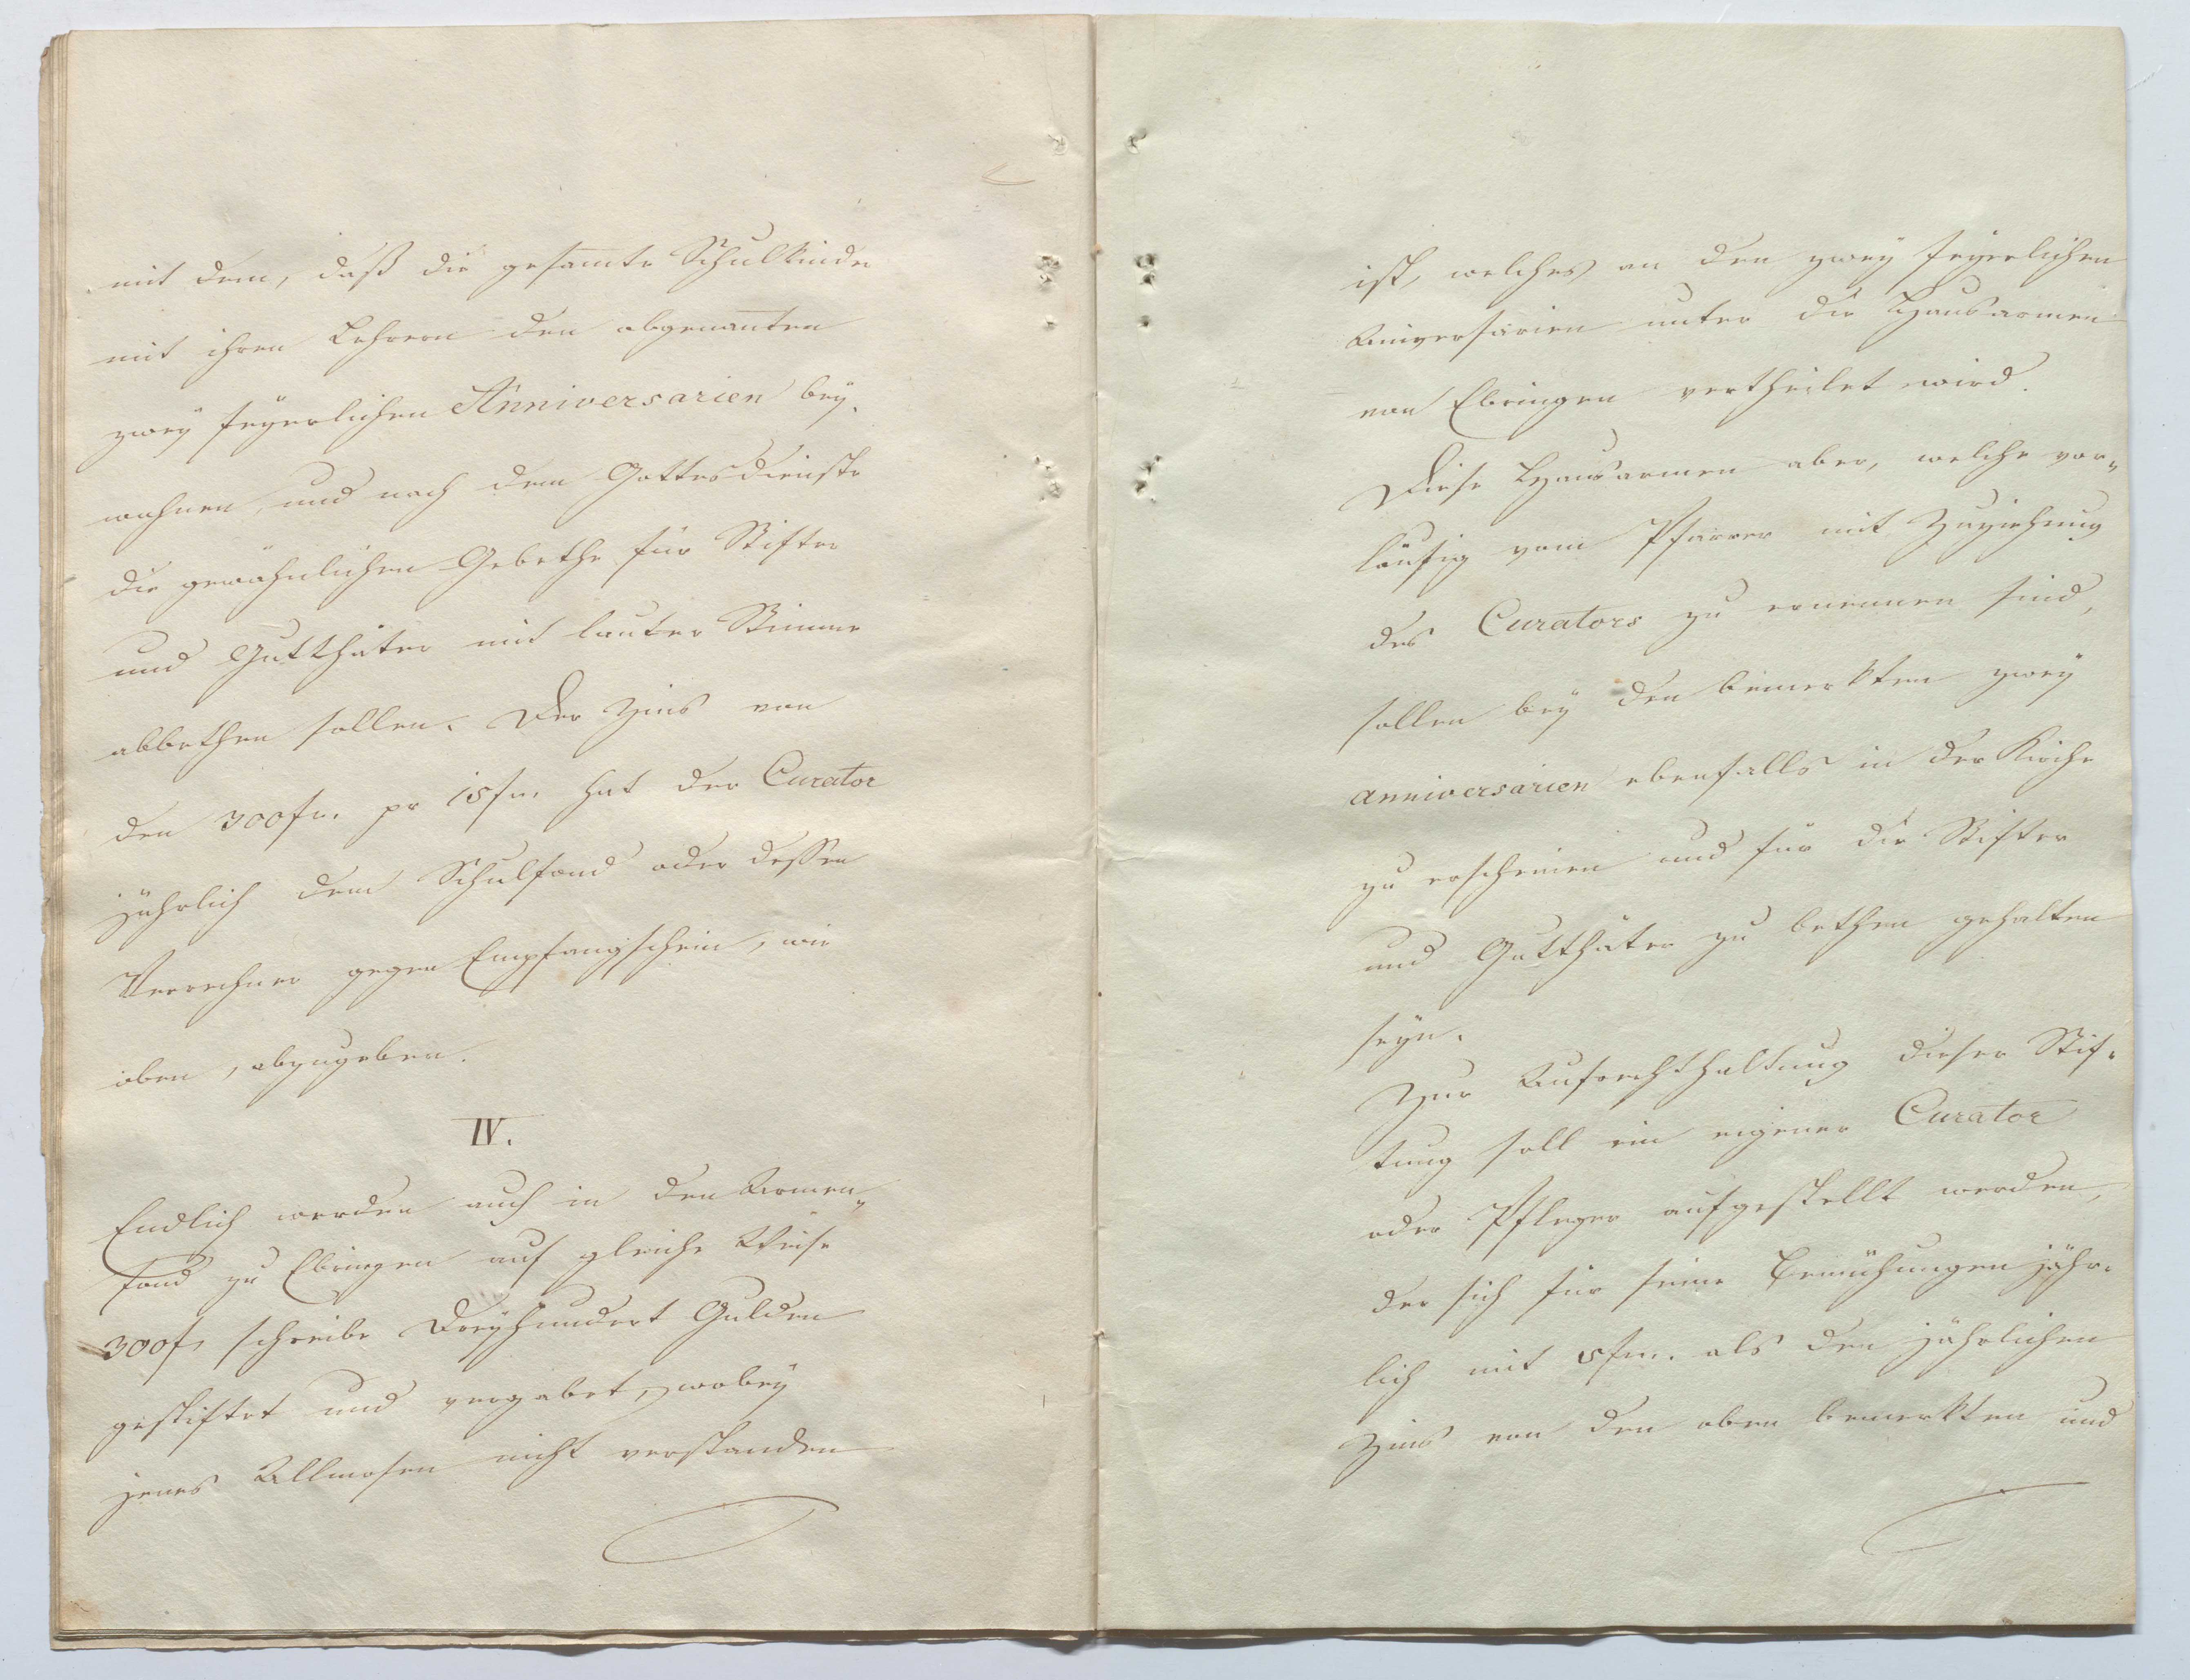 mit dem, daß die gesam̅te Schulkinder
mit ihren Lehrern den abgenan̅ten
zweÿ feÿerlichen Anniversarien beÿ-
wohnen, und nach dem Gottesdienste
die gewöhnlichen Gebethe für Stifter
und Gutthäter mit lauter Stimme
abbethen sollen. Der Zins von
den 300 fr. pr 15 fr. hat der Curator
jährlich dem Schulfond oder dessen
Verrechner gegen Empfangschein, wie
oben, abzugeben.
IV.
Endlich werden auch in den Armen„
fond zu Ebringen auf gleiche Weise
300 f. schreibe Dreÿhundert Gulden
gestiftet und vergabet, wobeÿ
jenes Allmosen nicht verstanden
ist, welches an den zweÿ feÿerlichen
Aniversarien unter die Hausarmen
von Ebringen vertheilet wird.
Diese Hausarmen aber, welche vor„
läufig vom Pfarrer mit Zuziehung
des Curators zu ernennen sind,
sollen beÿ den bemerkten zweÿ
anniversarien ebenfalls in der Kirche
zu erscheinen und für die Stifter
und Gutthäter zu bethen gehalten
seÿn.
Zur Aufrechthaltung dieser Stif-
tung soll ein eigener Curator
oder Pfleger aufgestellt werden,
der sich für seine Bemühungen jähr-
lich mit 5 fr. als den jährlichen
Zins von den oben bemerkten und